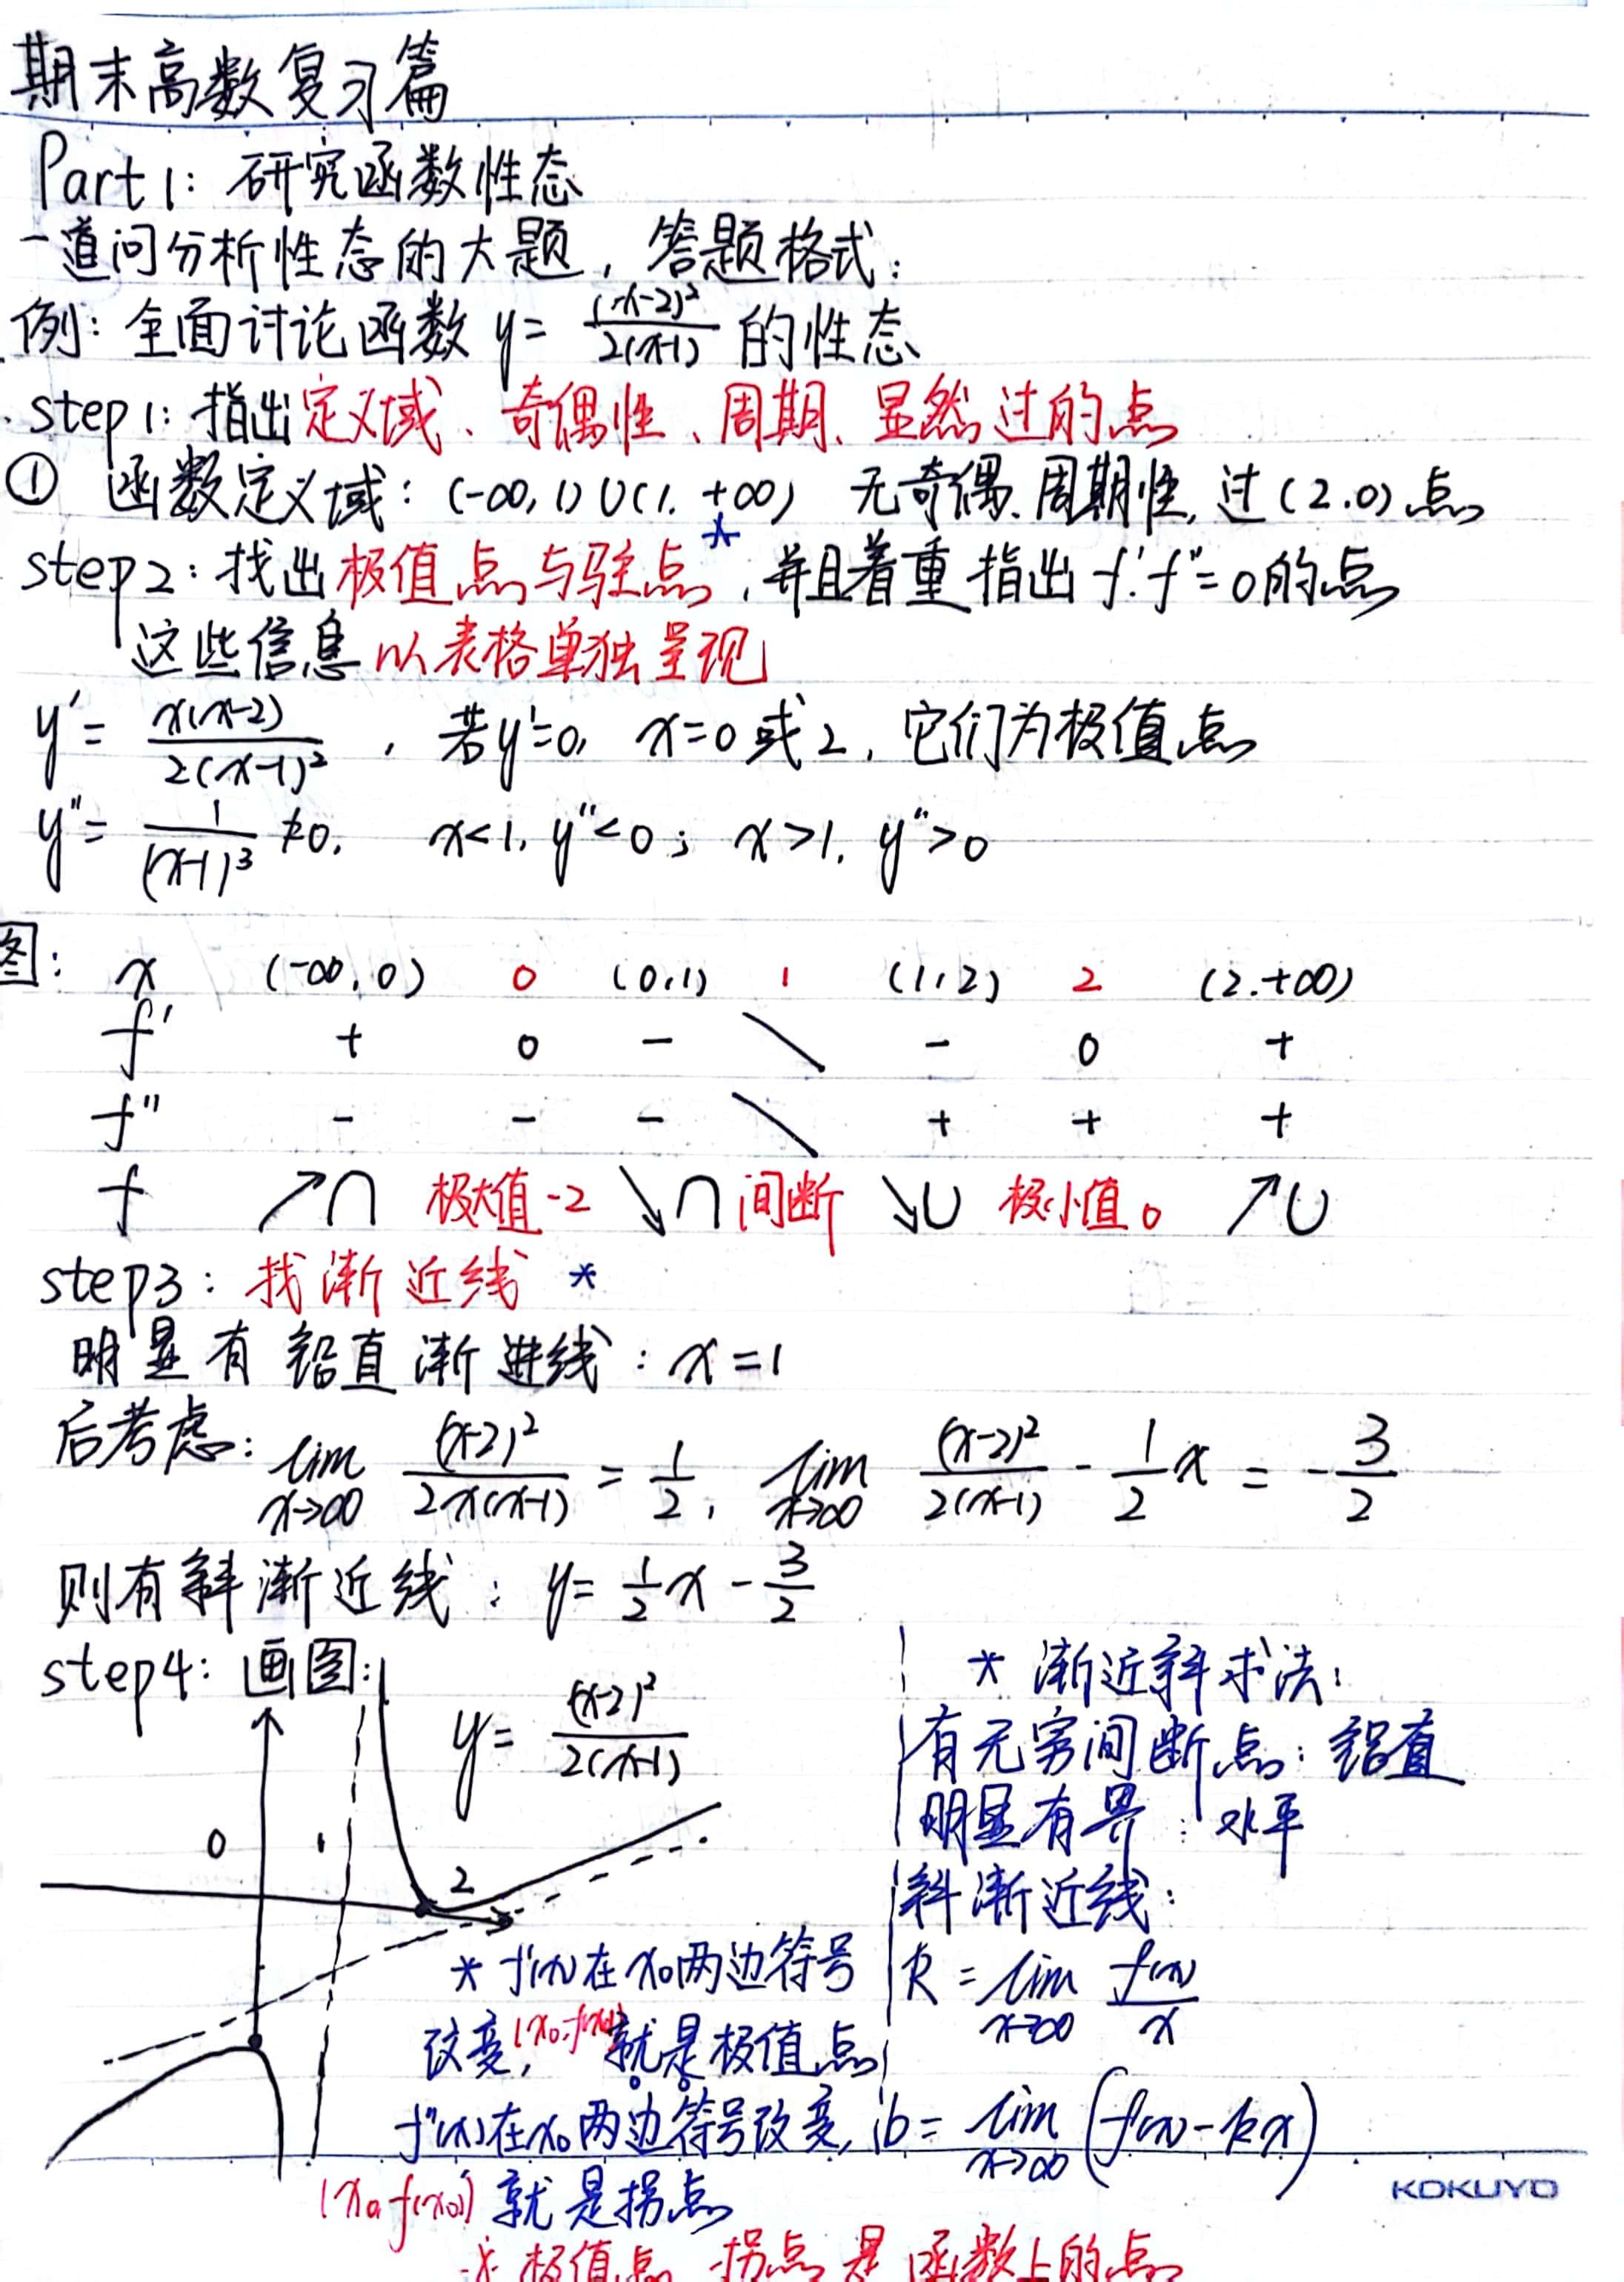 期末高数复习篇
Part1: 研究函数性态
一道问分析性态的大题，答题格式：
例: 全面讨论函数 y = (x-2)²/2(x-1) 的性态
step1: 指出定义域、奇偶性、周期、显然过的点
① 函数定义域: (-∞,1)∪(1,+∞) 无奇偶、周期性, 过(2.0)点
step2: 找出极值点与驻点*, 并且着重指出 f'.f''=0的点
这些信息以表格单独呈现
y' = x(x-2)/2(x-1)² , 若y'=0, x=0或2, 它们为极值点
y'' = 1/(x-1)³ ≠0, x<1, y''<0; x>1, y''>0
图: x (-∞,0) 0 (0,1) 1 (1,2) 2 (2.+∞)
f' + 0 - \ - 0 +
f'' - - - \ + + +
f ↗∩ 极大值-2 ↘∩ 间断 ↘∪ 极小值0 ↗∪
step3: 找渐近线 *
明显有铅直渐进线: x=1
后考虑: lim x→∞ (x-2)²/2x(x-1) = 1/2, lim x→∞ (x-2)²/2(x-1) - 1/2 x = -3/2
则有斜渐近线: y = 1/2 x - 3/2
step4: 画图:
y = (x-2)²/2(x-1)
0 1
2
* f'(x)在x₀两边符号
改变, (x₀,f(x₀))就是极值点
f''(x)在x₀两边符号改变,
(x₀,f(x₀)) 就是拐点
* 极值点 拐点 是 函数上的点
* 渐近斜求法:
有无穷间断点: 铅直
明显有界: 水平
斜渐近线:
k = lim x→∞ f(x)/x
b = lim x→∞ (f(x)-kx)
KOKUYO